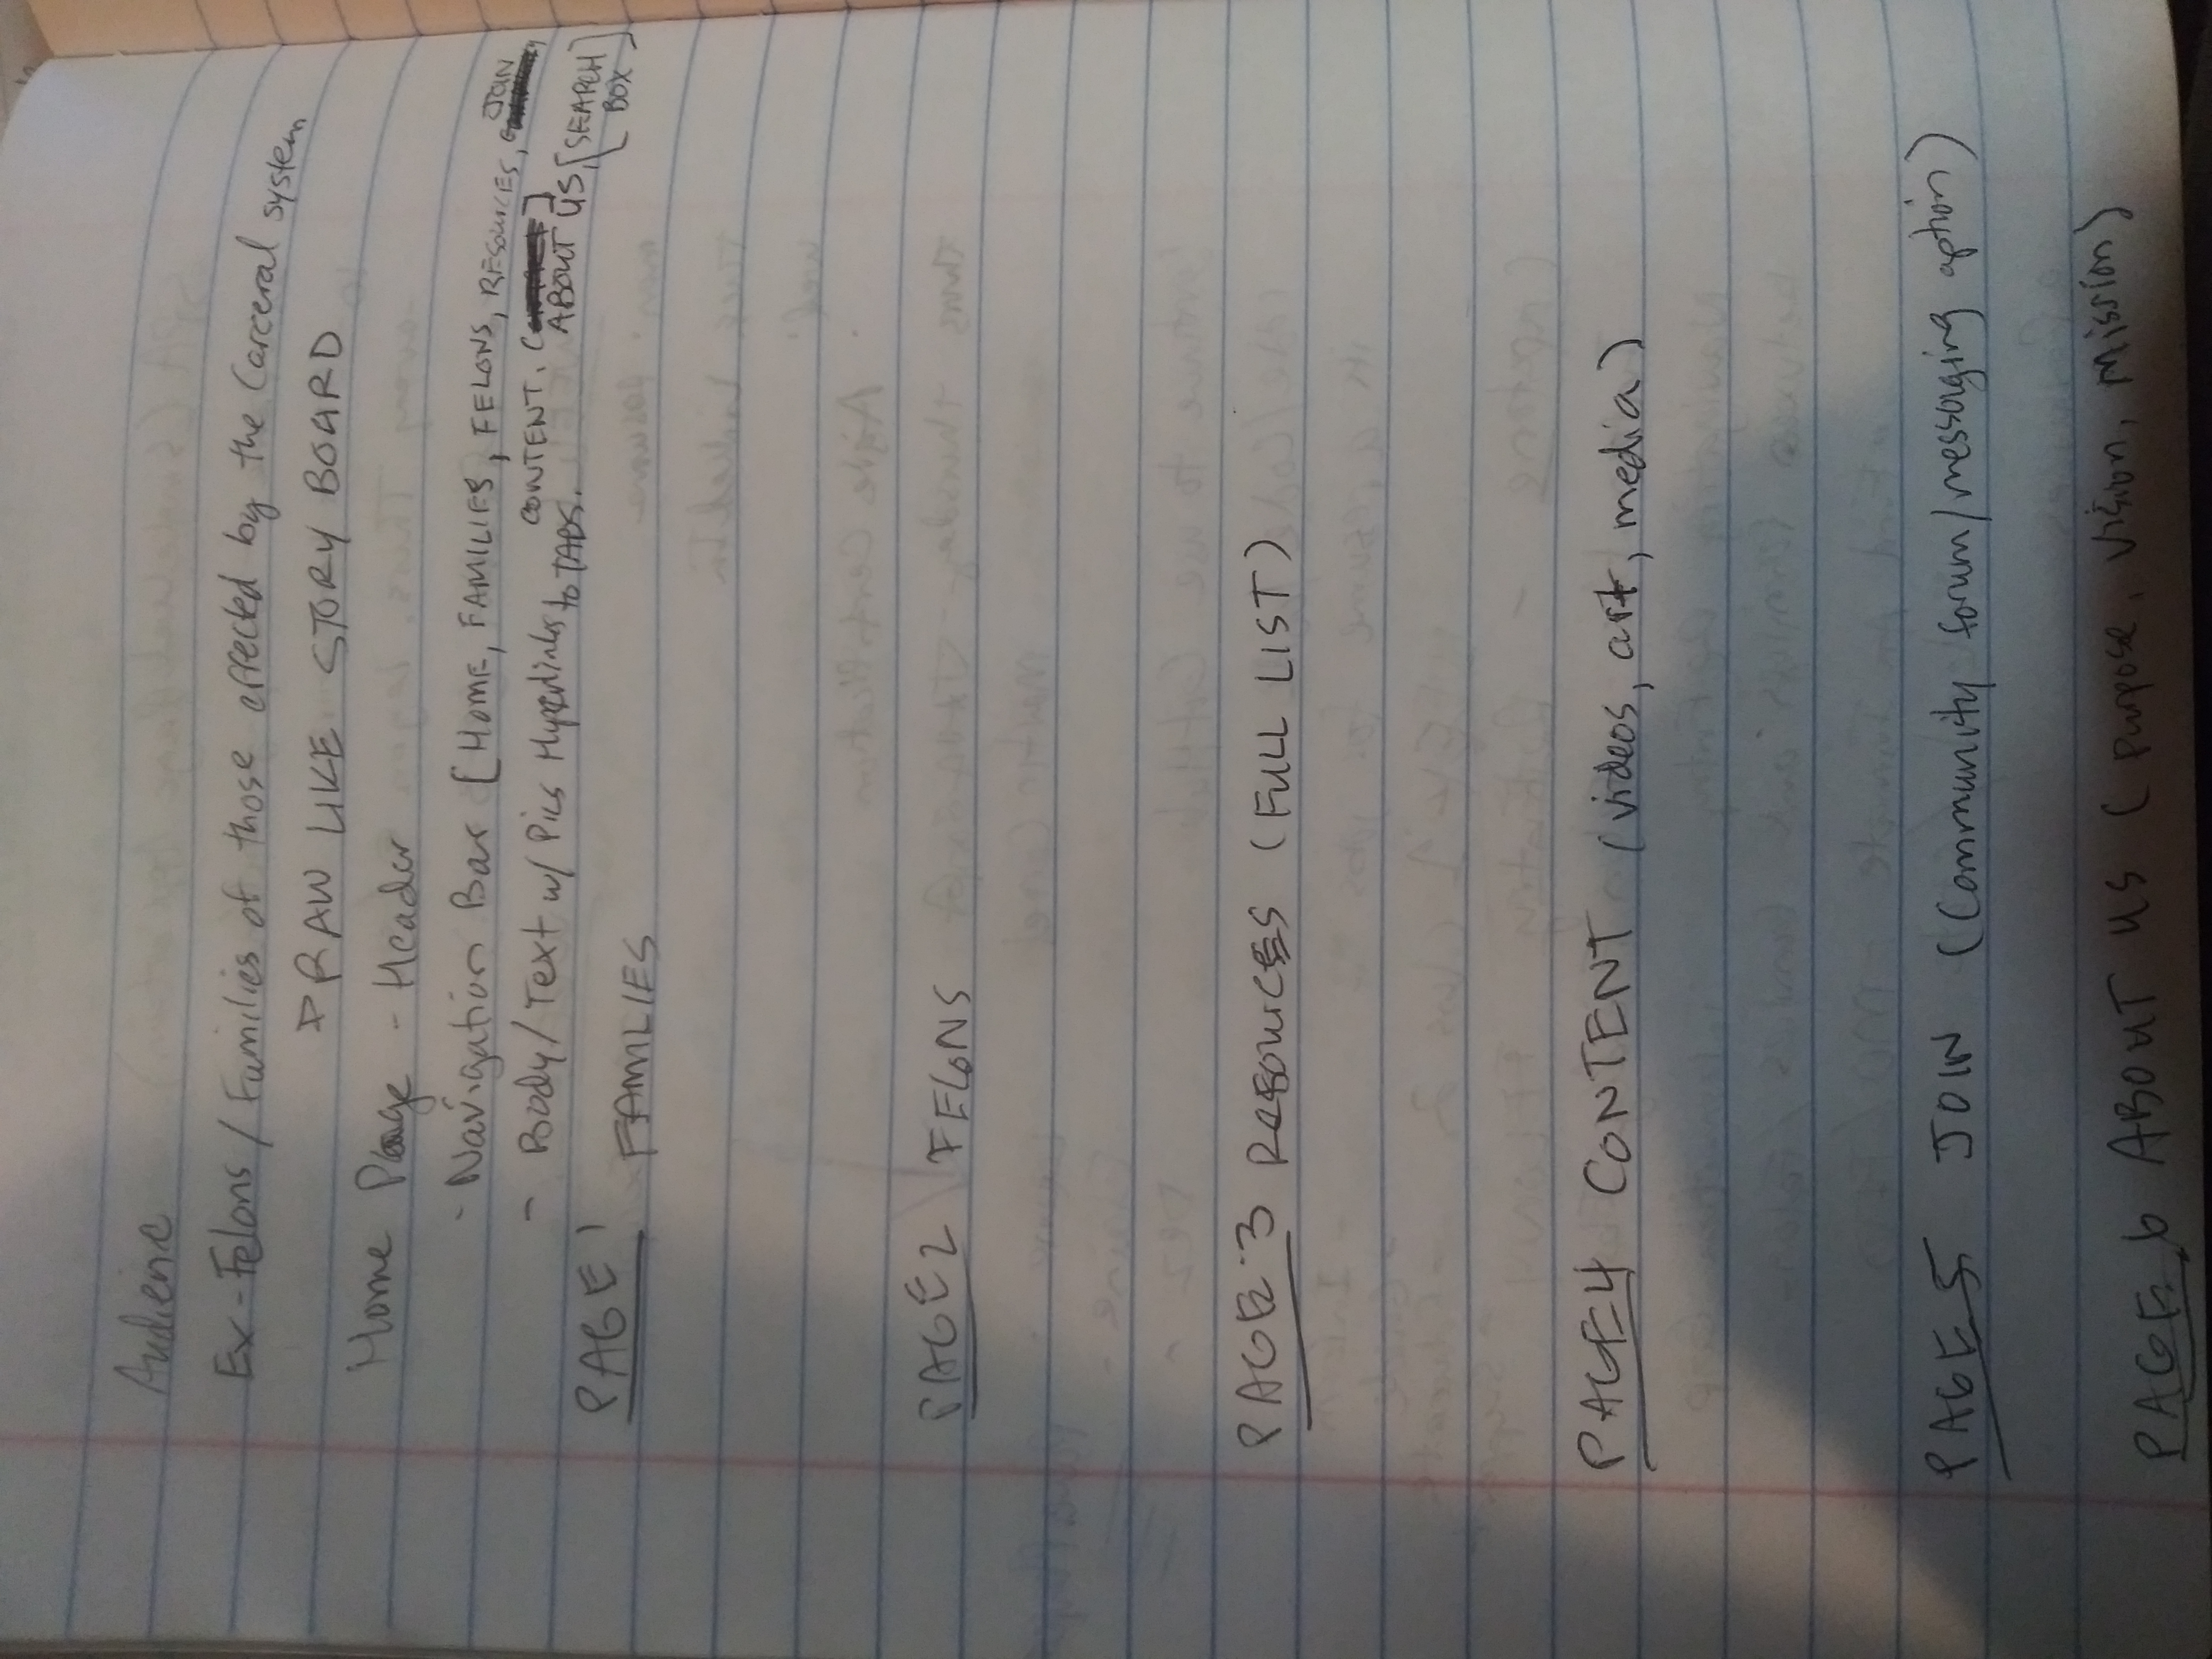 Audience
Ex-Felons / Families of those effected by the Carceral system
DRAW LIKE STORY BOARD
Home Page - Header
- Navigation Bar [HOME, FAMILIES, FELONS, RESOURCES, JOIN
CONTENT, ]
ABOUT US, [SEARCH BOX]
- Body/Text w/ Pics Hyperlinks to TABS.
PAGE 1 FAMILIES
PAGE 2 FELONS
PAGE 3 RESOURCES (FULL LIST)
PAGE 4 CONTENT (videos, art, media)
PAGE 5 JOIN (Community forum/messaging option)
PAGE 6 ABOUT US (purpose, vision, mission)